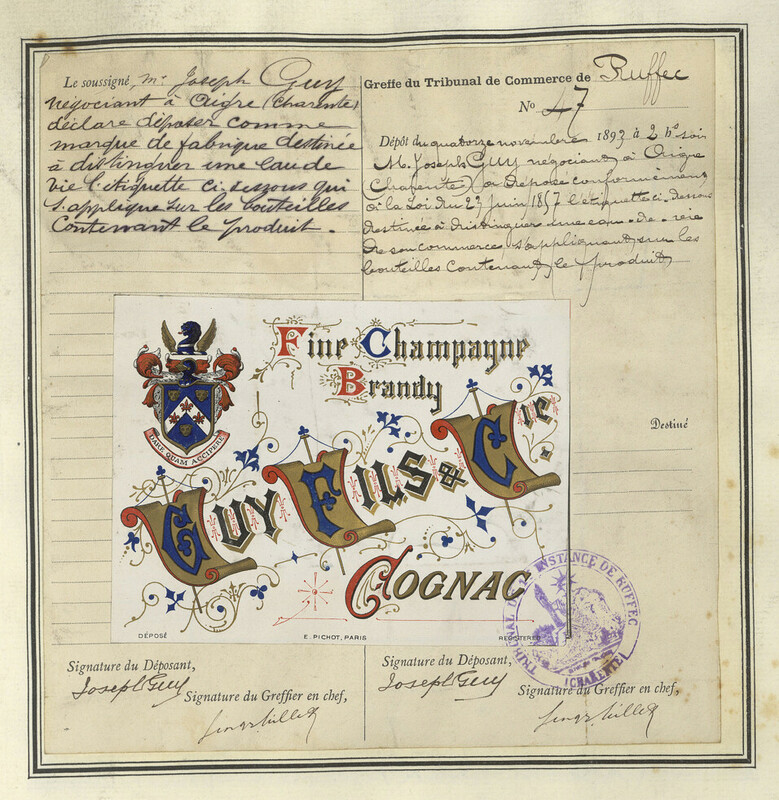 Le soussigné, Mr. Joseph Guy
négociant à Aigre (Charente)
déclare déposer comme
marque de fabrique destinée
à distinguer une eau de
vie l'étiquette ci-dessous qui
s'applique sur les bouteilles
contenant le produit.
Greffe du Tribunal de Commerce de Ruffec
No 47
Dépôt du quatorze novembre 1893 à 2 hes soir
M. Joseph Guy négociant à Aigre
(Charente) a déposé conformément
à la Loi du 23 juin 1857 l'étiquette ci-dessous
destinée à distinguer une eau-de-vie
de son commerce s'appliquant sur les
bouteilles contenant le produit
Destiné
Fine Champagne
Brandy
DARE QUAM ACCIPERE
GUY FILS & Cie.
COGNAC
DÉPOSÉ
E. PICHOT, PARIS
REGISTERED
TRIBUNAL DE 1re INSTANCE DE RUFFEC
(CHARENTE)
Signature du Déposant,
Joseph Guy
Signature du Greffier en chef,
Signature du Déposant,
Joseph Guy
Signature du Greffier en chef,